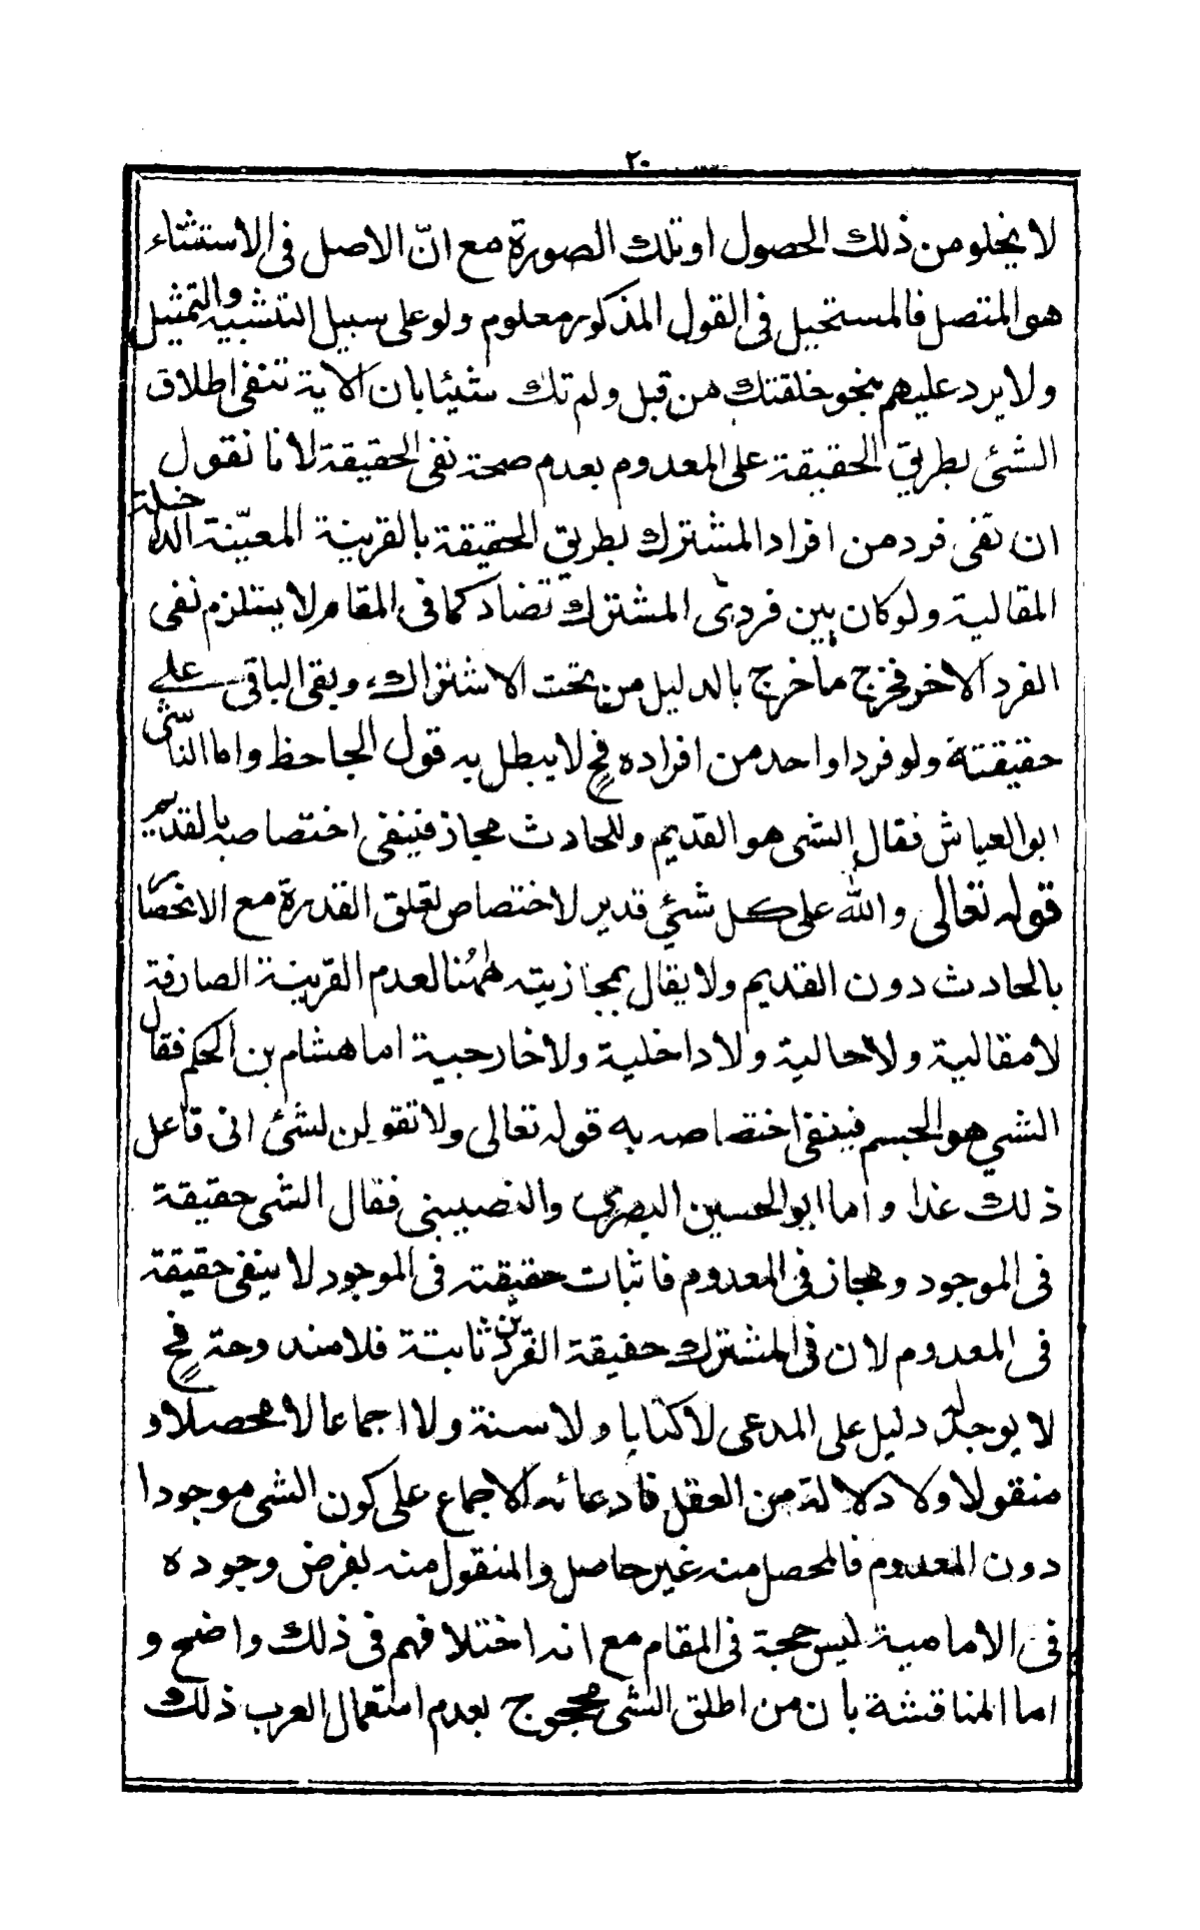 ٢٠
لا يخلو من ذلك الحصول او تلك الصورة مع انّ الاصل فى الاستثناء
هو المتصل فالمستحيل فى القول المذكور معلوم ولو على سبيل التشبيه والتمثيل
ولا يرد عليهم بنحو خلقتك من قبل ولم تك شيئا بان الاية تنفى اطلاق
الشئ بطريق الحقيقة على المعدوم بعدم صحة نفى الحقيقة لانا نقول
ان نفى فرد من افراد المشترك بطريق الحقيقة بالقرينة المعيّنة الداخلة
المقالية ولو كان بين فردى المشترك تضاد كما فى المقام لا يستلزم نفى
الفرد الاخر فخرج ما خرج بالدليل من تحت الاشتراك وبقى الباقى على
حقيقتة ولو فردا واحد من افراده فح لا يبطل به قول الجاحظ واما الناشى
ابو العياش فقال الشى هو القديم وللحادث مجاز فينفى اختصاصه بالقديم
قوله تعالى والله على كل شئ قدير لاختصاص تعلق القدرة مع الانحصار
بالحادث دون القديم ولا يقال بمجازيته ههُنا لعدم القرينة الصارفة
لا مقالية ولا حالية ولا داخلية ولا خارجية اما هشام بن الحكم فقال
الشي هو الجسم فينفى اختصاصه به قوله تعالى ولا تقولن لشئ انى فاعل
ذلك غدا واما ابو الحسين البصري والنصيبنى فقال الشى حقيقة
فى الموجود ومجاز فى المعدوم فاثبات حقيقته فى الموجود لا ينفى حقيقة
فى المعدوم لان فى المشترك حقيقة الفردين ثابتة فلا مندوحة فح
لا يوجد له دليل على المدعى لا كتابا ولا سنة ولا اجماعا لا محصلا و
منقولا ولا دلالة من العقل فادعائه الاجماع على كون الشى موجودا
دون المعدوم فالمحصل منه غير حاصل والمنقول منه بفرض وجوده
فى الامامية ليس حجة فى المقام مع انه اختلافهم فى ذلك واضح و
اما المناقشة بأن من اطلق الشى محجوج بعدم استعمال العرب ذلك